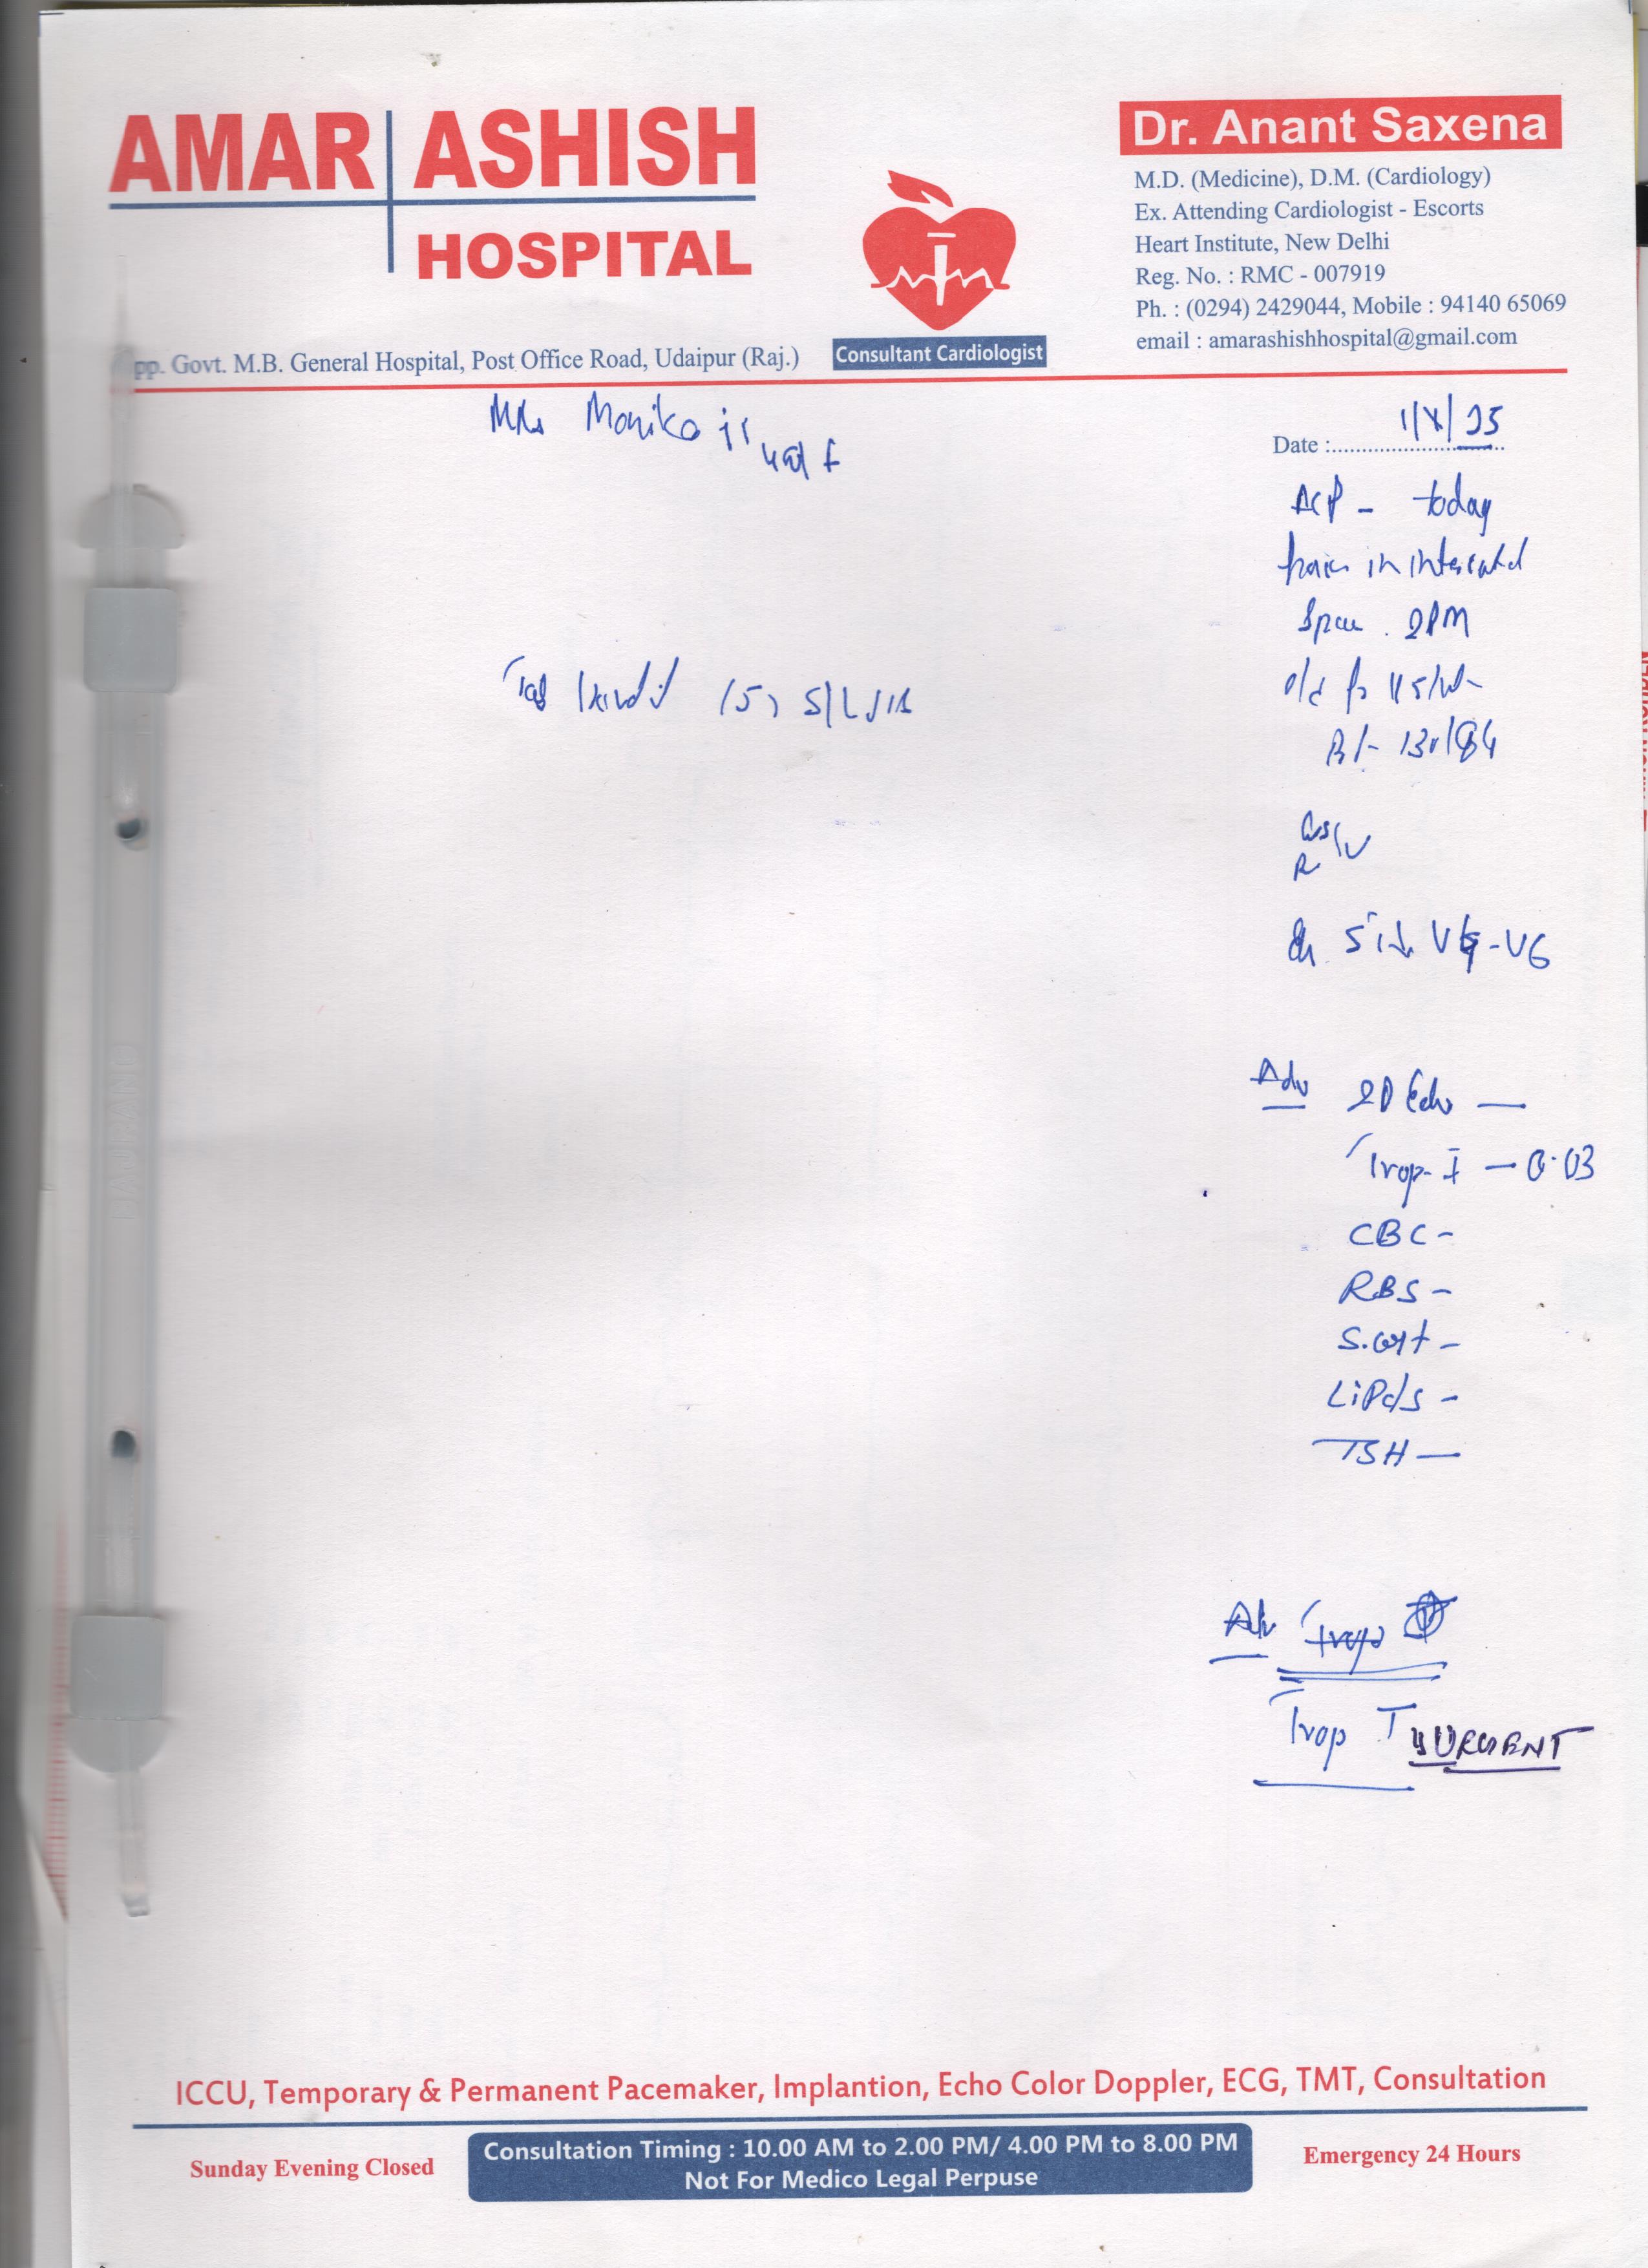 AMAR ASHISH
HOSPITAL
pp. Govt. M.B. General Hospital, Post Office Road, Udaipur (Raj.)
Consultant Cardiologist
Dr. Anant Saxena
M.D. (Medicine), D.M. (Cardiology)
Ex. Attending Cardiologist - Escorts
Heart Institute, New Delhi
Reg. No. : RMC - 007919
Ph. : (0294) 2429044, Mobile : 94140 65069
email : amarashishhospital@gmail.com
Mrs Monika
Date : 1/X/25
ACP - today
in
2PM
130/84
V4-V6
Tab (5) S/L
Adv 2D Echo —
Trop-I — 0.03
CBC -
RBS -
S. -
LiPds -
TSH —
Adv
Trop T URGENT
ICCU, Temporary & Permanent Pacemaker, Implantion, Echo Color Doppler, ECG, TMT, Consultation
Sunday Evening Closed
Consultation Timing : 10.00 AM to 2.00 PM/ 4.00 PM to 8.00 PM
Not For Medico Legal Perpuse
Emergency 24 Hours